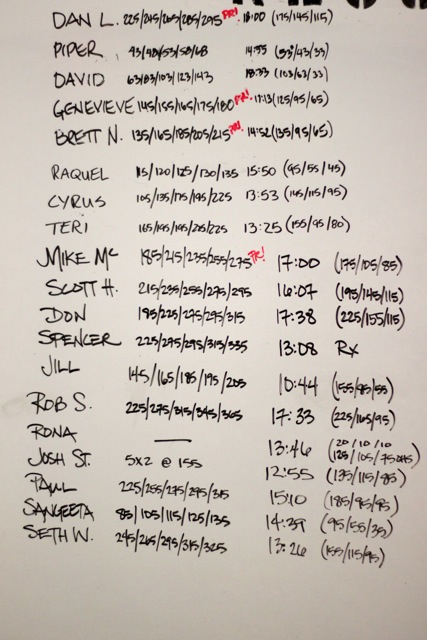 DAN L. 225/245/265/285/295 PR! 18:00 (175/145/115)
PIPER 43/48/53/58/68 14:55 (53/43/33)
DAVID 63/83/103/123/143 18:33 (103/63/33)
GENEVIEVE 145/155/165/175/180 PR! 17:13 (125/95/65)
BRETT N. 135/165/185/205/215 PR! 14:52 (135/95/65)
RAQUEL 115/120/125/130/135 15:50 (95/55/45)
CYRUS 105/135/175/195/225 13:53 (145/115/95)
TERI 13:25 (155/95/80)
MIKE Mc 185/215/235/255/275 PR! 17:00 (175/105/85)
SCOTT H. 215/235/255/275/295 16:07 (195/145/115)
DON 185/225/275/295/315 17:38 (225/155/115)
SPENCER 225/275/295/315/335 13:08 RX
JILL 145/165/185/195/205 10:44 (155/85/55)
ROB S. 225/275/315/345/365 17:33 (225/165/95)
RONA — 13:46 (20/10/10
JOSH ST. 5X2 @ 155 12:55 (135/115/85)
PAUL 225/255/275/295/315 15:10 (185/95/95)
SANGEETA 85/105/115/125/135 14:39 (95/55/35)
SETH W. 245/265/295/315/325 13:26 (155/115/95)